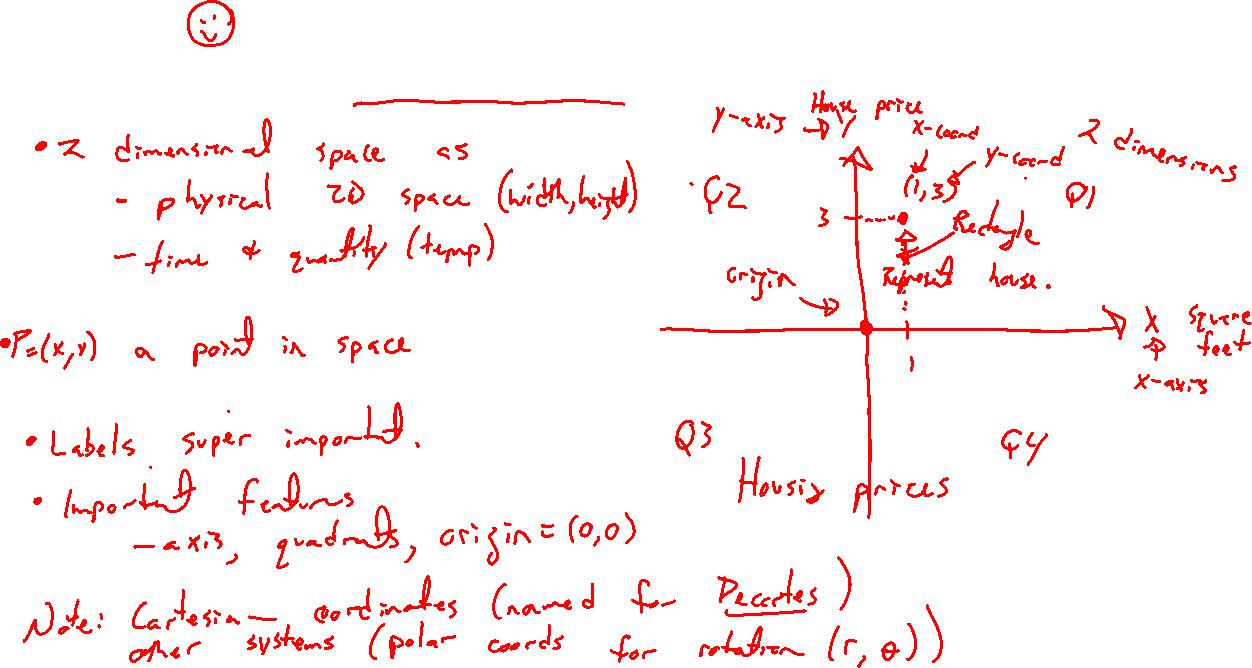 • 2 dimensional space as
- physical 2D space (width, height)
- time & quantity (temp)
• P=(x,y) a point in space
• Labels super important.
• Important features
- axis, quadrants, origin = (0,0)
Note: Cartesian coordinates (named for Decartes)
other systems (polar coords for rotation (r, θ))
House price
y-axis → y
x-coord
y-coord
2 dimensions
(1, 3)
Q2
Q1
3
Rectangle
Represent house.
origin
x square feet
x-axis
1
Q3
Q4
Housing prices